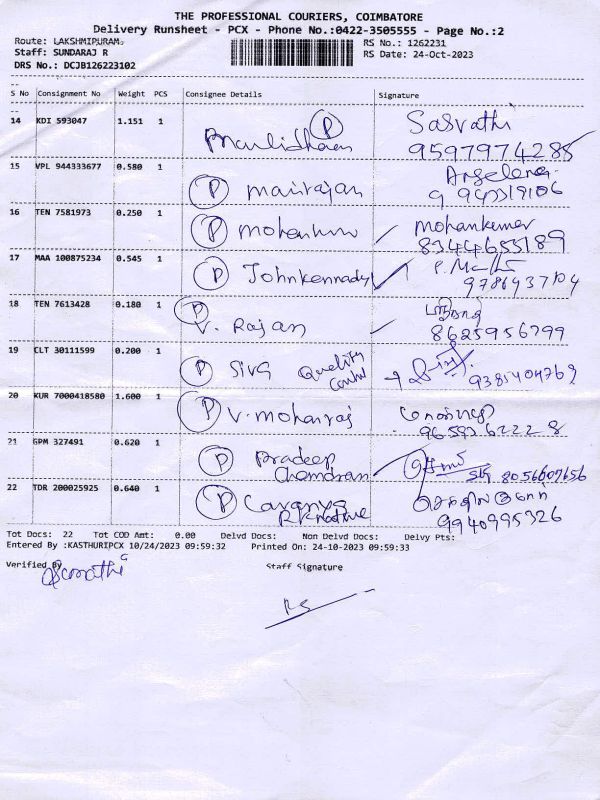 THE PROFESSIONAL COURIERS, COIMBATORE
Delivery Runsheet - PCX - Phone No.:0422-3505555 - Page No.:2
Route: LAKSHMIPURAM. RS No.: 1262231
Staff: SUNDARAJ R RS Date: 24-Oct-2023
DRS No.: DCJB126223102
S No Consignment No Weight PCS Consignee Details Signature
14 KDI 593047 1.151 1 P Sasvathi
9597974285
15 VPL 944333677 0.580 1 P manirajan
16 TEN 7581973 0.250 1 P mohankumar
8344655189
17 MAA 100875234 0.545 1 P Johnkennady
9786437104
18 TEN 7613428 0.180 1 P
V. Rajan 8625956799
19 CLT 30111599 0.200 1 P Siva Quality
Control 9385404769
20 KUR 7000418580 1.600 1 P V. mohanraj
21 GPM 327491 0.620 1 P Pradeep
Chandran 8056607656
22 TDR 200025925 0.640 1 P
9940995326
Tot Docs: 22 Tot COD Amt: 0.00 Delvd Docs: Non Delvd Docs: Delvy Pts:
Entered By :KASTHURIPCX 10/24/2023 09:59:32 Printed On: 24-10-2023 09:59:33
Verified By Staff Signature
RS